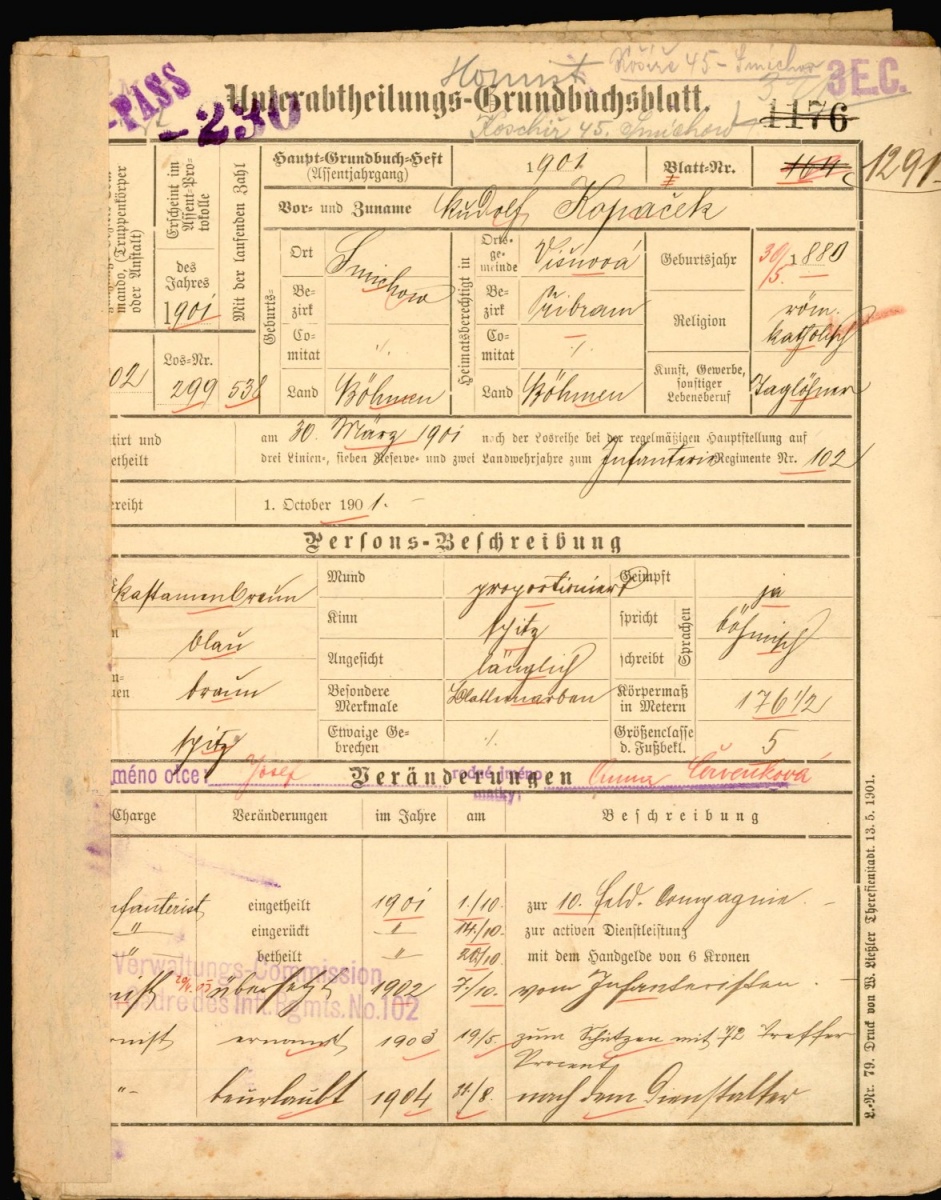 Hornist. Košíře 45 - Smíchov
-PASS
-230
Unterabtheilungs-Grundbuchsblatt.
3E.C.
Koschíř 45. Smichow
1176
Haupt-Grundbuch-Heft
(Assentjahrgang)
1901
Blatt-Nr.
1291
Vor- und Zuname Rudolf Kopaček
mando, (Truppenkörper
oder Anstalt)
Erscheint im
Assent-Pro-
tokolle
des
Jahres
1901
Mit der laufenden Zahl
Los-Nr.
02
299
538
Geburts-
Ort Smichow
Be-
zirk
Co-
mitat ·/.
Land Böhmen
Heimatsberechtigt in
Orts-
ge-
meinde Višnová
Be-
zirk Přibram
Co-
mitat ·/.
Land Böhmen
Geburtsjahr 30/5. 1880
Religion röm.
katholisch
Kunst, Gewerbe,
sonstiger
Lebensberuf Taglöhner
tirt und
etheilt
am 30. März 1901 nach der Losreihe bei der regelmäßigen Hauptstellung auf
drei Linien-, sieben Reserve- und zwei Landwehrjahre zum Infanterie Regimente Nr. 102
ereiht
1. October 1901. -
Persons-Beschreibung
kastanienbraun
blau
braun
spitz
Mund proportioniert
Kinn spitz
Angesicht länglich
Besondere
Merkmale Blatternarben
Etwaige Ge-
brechen ·/.
Geimpft ja
spricht
schreibt
Sprachen
böhmisch
Körpermaß
in Metern 176 1/2
Größenclasse
d. Fußbekl. 5
jméno otce: Josef
Veränderungen
rodné jméno
matky: Anna Červenková
Charge Veränderungen im Jahre am Beschreibung
nfanterist eingetheilt 1901 1./10. zur 10. Feld. Compagnie. -
" eingerückt " 14./10. zur activen Dienstleistung
" betheilt " 20/10. mit dem Handgelde von 6 Kronen
Verwaltungs-Commission
nist übersetzt 1902 7./10. vom Infanteristen. -
Cadre des Inf. Rgmts. No. 102
rnist ernannt 1903 19/5. zum Schützen mit 72 Treffer
Procent
" beurlaubt 1904 31./8. nach dem Dienstalter
L.-Nr. 79. Druck von W. Ließler Theresienstadt. 13. 5. 1901.